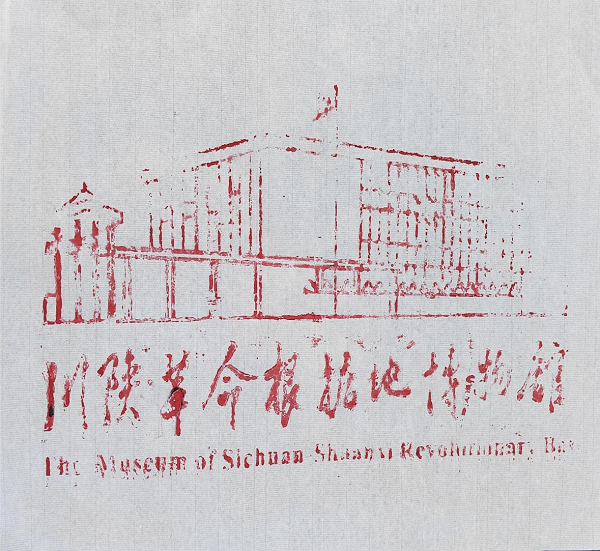 川陕革命根据地博物馆
The Museum of Sichuan-Shaanxi Revolutionary Bas